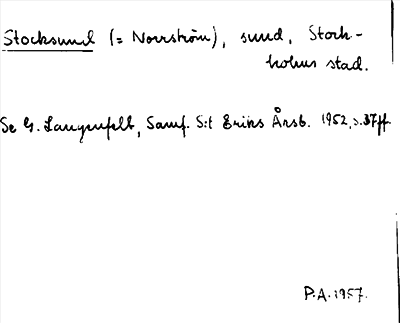 Stocksund (= Norrström), sund, Stock-
holms stad.
Se G. Langenfelt, Samf. S:t Eriks Årsb. 1952, s. 37ff
P.A. 1957.